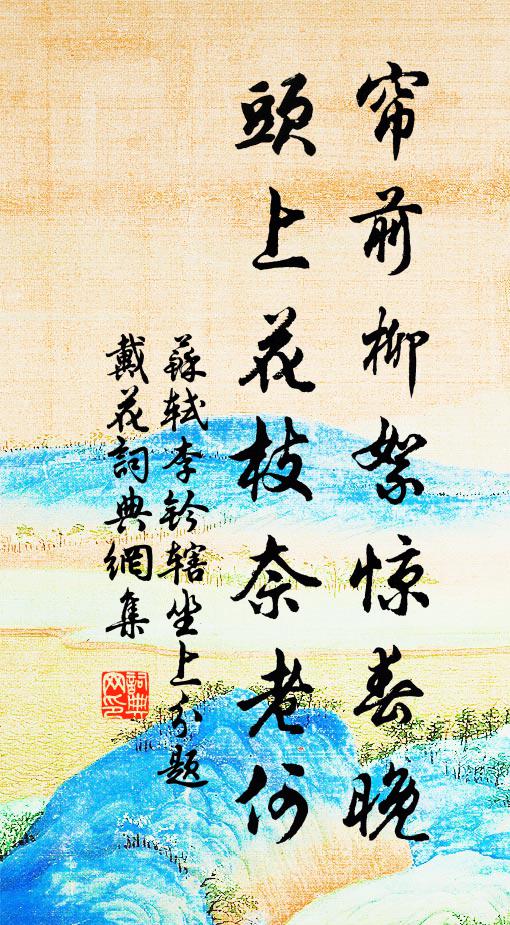 帘前柳絮惊春晚
頭上花枝奈老何
蘇軾李鈐辖坐上分題
戴花詞典網集
詞典网印